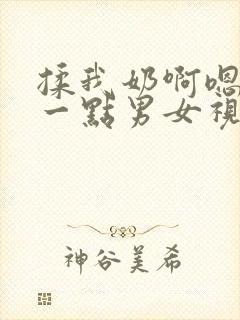 揉我奶啊嗯
一點男女視
神谷美希